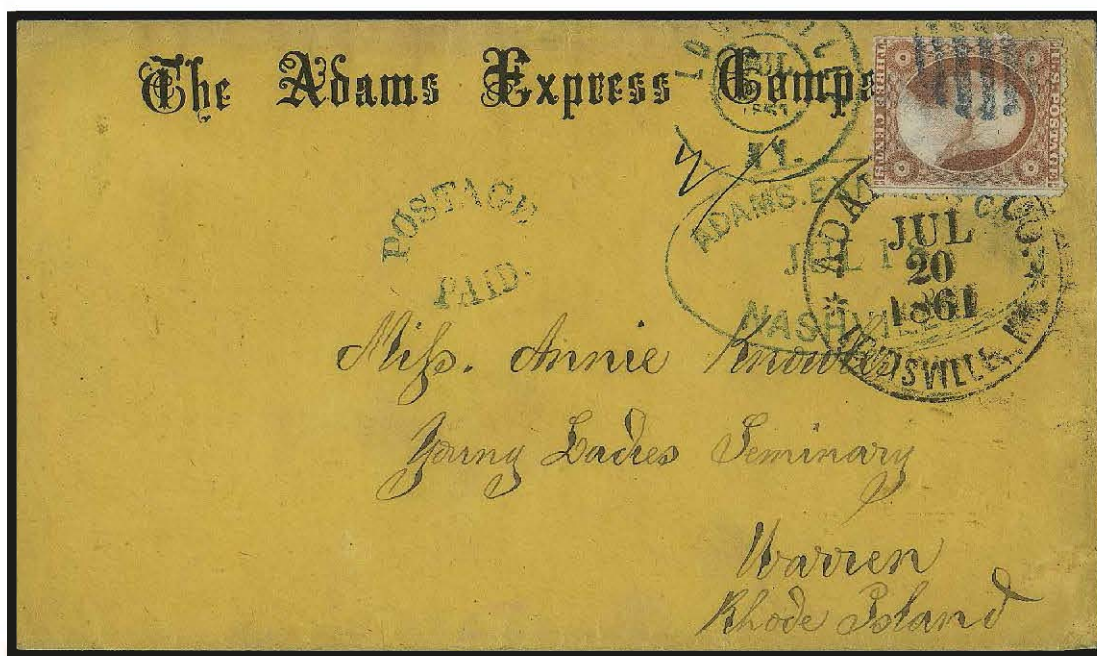 The Adams Express Compa
LOUISVILL
JUL
1861
KY.
U.S. POSTAGE
THREE CENTS
POSTAGE
PAID.
ADAMS. EX
JUL 1
NASHVILLE
CO.
JUL
20
1861
LOUISVILLE, KY.
Miss. Annie Knowles
Young Ladies Seminary
Warren
Rhode Island